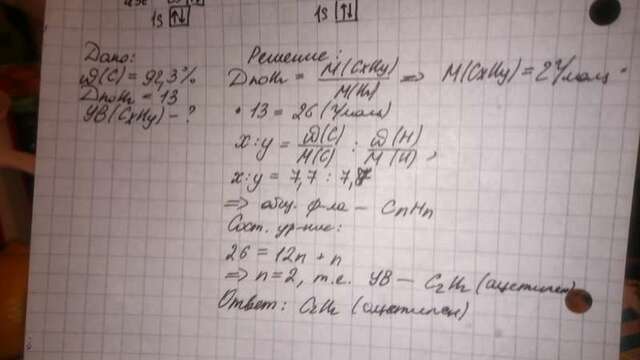 1s ↑↓ 1s ↑↓
Дано:
ω(C) = 92,3%
D по H₂ = 13
УВ (CxHy) - ?
Решение:
D по H₂ = M(CxHy) / M(H₂) ⇒ M(CxHy) = 2 г/моль ·
· 13 = 26 (г/моль)
x:y = ω(C) / M(C) : ω(H) / M(H) ,
x:y = 7,7 : 7,7
⇒ общ. ф-ла – CnHn
Сост. ур-ние:
26 = 12n + n
⇒ n=2, т.е. УВ – C₂H₂ (ацетилен)
Ответ: C₂H₂ (ацетилен)